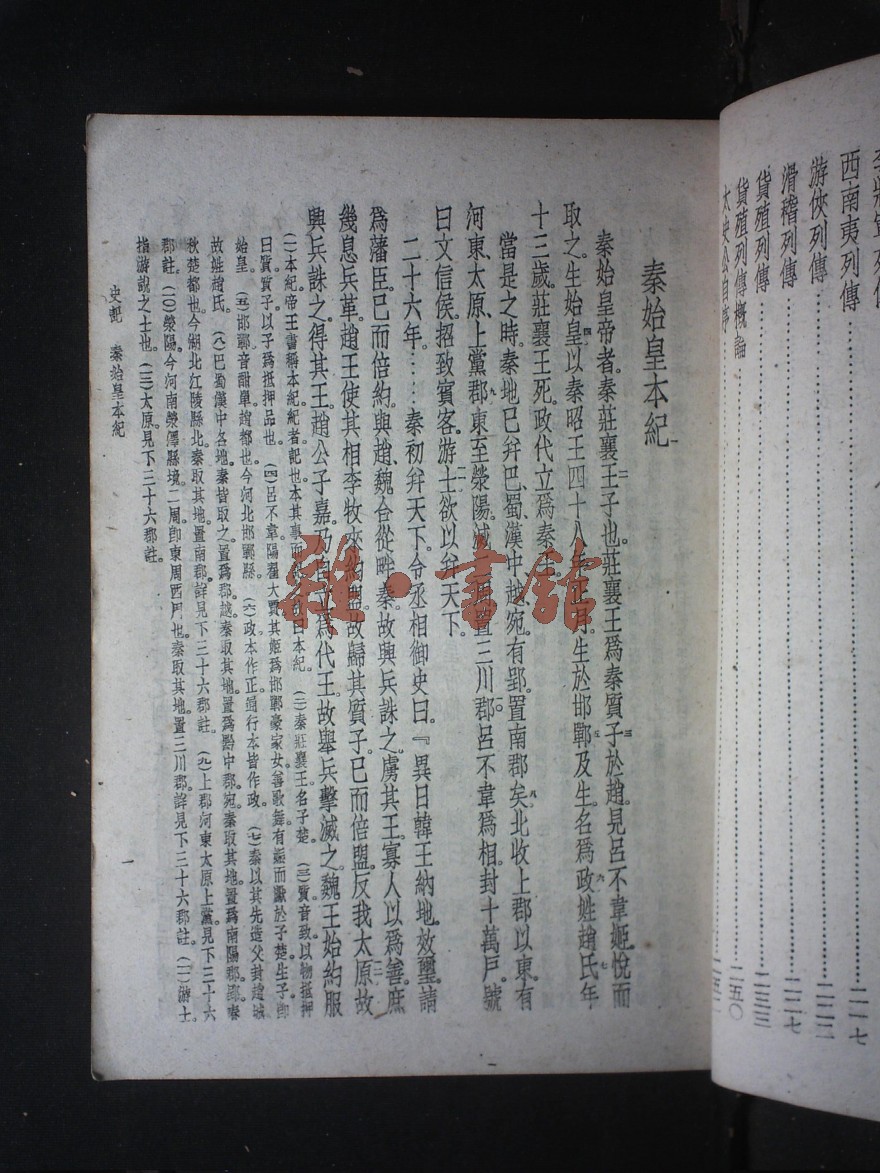 西南夷列傳…………二一七
游俠列傳…………二二二
滑稽列傳…………二二七
貨殖列傳…………二三三
貨殖列傳概論…………二五〇
太史公自序
秦始皇本紀一
秦始皇帝者，秦莊襄王二子也。莊襄王爲秦質三子於趙，見呂不韋姬，悅而
取之，生始皇四。以秦昭王四十八年正月，生於邯鄲五。及生，名爲政六，姓趙氏七。年
十三歲，莊襄王死，政代立爲秦王。
當是之時，秦地已幷巴、蜀、漢中，越宛有郢，置南郡矣八；北收上郡以東，有
河東、太原、上黨郡九；東至滎陽，滅二周，置三川郡一〇。呂不韋爲相，封十萬戶，號
曰文信侯。招致賓客游士一一，欲以幷天下。
二十六年。……秦初幷天下。令丞相御史曰：『異日韓王納地效璽，請
爲藩臣，已而倍約，與趙、魏合從畔秦，故興兵誅之，虜其王。寡人以爲善，庶
幾息兵革。趙王使其相李牧來約盟，故歸其質子。已而倍盟，反我太原一二，故
興兵誅之，得其王。趙公子嘉，乃自立爲代王，故舉兵擊滅之。魏王始約服
（一）本紀，帝王書稱本紀，紀者記也，本其事而記之，故曰本紀。（二）秦莊襄王名子楚。（三）質音致，以物抵押
曰質，質子以子爲抵押品也。（四）呂不韋，陽翟大賈，其姬爲邯鄲豪家女，善歌舞，有娠而獻於子楚，生子卽
始皇。（五）邯鄲音酣單，趙都也，今河北邯鄲縣。（六）政本作正，通行本皆作政。（七）秦以其先造父封趙城，
故姓趙氏。（八）巴蜀漢中各地，秦皆取之，置爲郡。越，秦取其地，置爲黔中郡。宛，秦取其地，置爲南陽郡。郢，春
秋楚都也，今湖北江陵縣北，秦取其地，置南郡，詳見下三十六郡註。（九）上郡河東太原上黨，見下三十六
郡註。（一〇）滎陽，今河南滎澤縣境。二周，卽東周西周也，秦取其地，置三川郡，詳見下三十六郡註。（一一）游士，
指游說之士也。（一二）太原，見下三十六郡註。
史記 秦始皇本紀
一
雜·書館